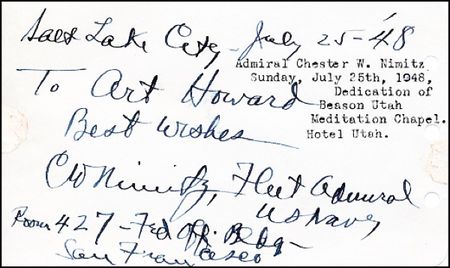 Salt Lake City - July 25-'48
Admiral Chester W. Nimitz
Sunday, July 25th, 1948,
Dedication of
Beason Utah
Meditation Chapel.
Hotel Utah.
To Art Howard
Best Wishes
CW Nimitz, Fleet Admiral
US Navy
Room 427 - Fed Off. Bldg -
San Francisco